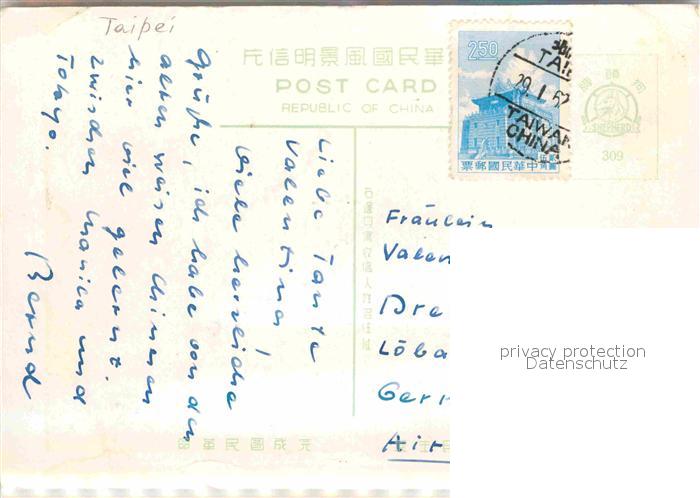 Taipei
中華民國郵票
2.50
TAI
29. 1. 62
TAIWAN
CHINA
華民國風景明信片
POST CARD
REPUBLIC OF CHINA
SHEPHERD
309
Liebe Tante
Valentina!
Viele herzliche
Grüße, ich habe von den
alten weisen Chinesen
hier viel gelernt.
zwischen Manila und
Tokyo.
Bernd
Fräulein
Valen
Dre
Löba
Germ
Air
privacy protection
Datenschutz